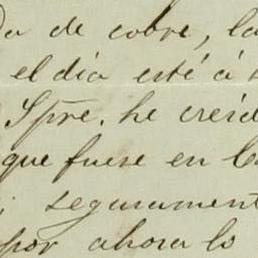 da de cobre, la
el día esté á
Spre. he creid
que fuese en
; segurament
por ahora lo